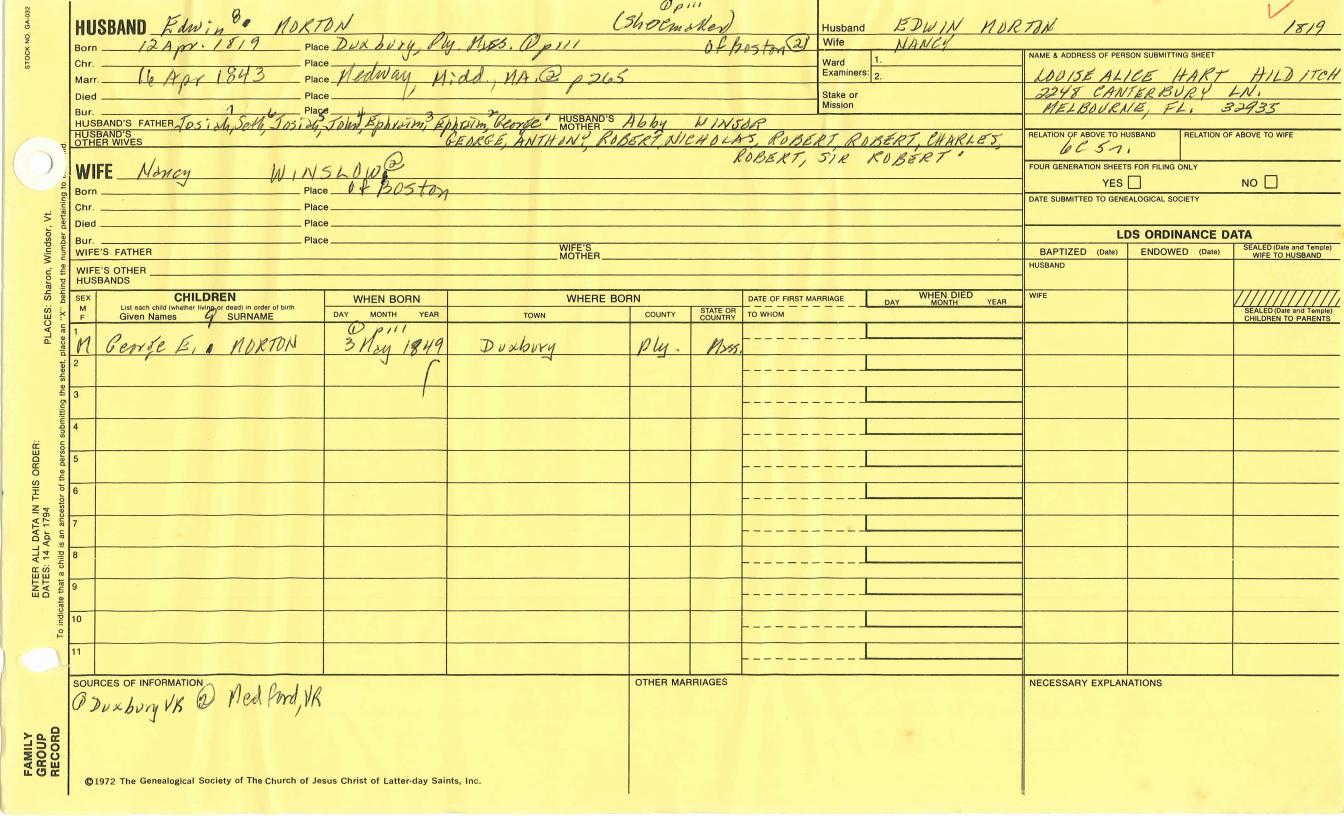 STOCK NO. GA-032
① p111
HUSBAND Edwin 8. MORTON (Shoemaker)
Born 12 Apr. 1819 Place Duxbury, Ply. Mss. ① p111 of Boston ②
Chr. Place
Marr. 16 Apr 1843 Place Medway, Midd., MA. ② p265
Died Place
Bur. Place
HUSBAND'S FATHER Josiah,7 Seth,6 Josiah,5 John,4 Ephraim,3 Ephraim,2 George1 HUSBAND'S MOTHER Abby WINSOR
HUSBAND'S OTHER WIVES GEORGE, ANTHONY, ROBERT, NICHOLAS, ROBERT, ROBERT, CHARLES,
ROBERT, SIR ROBERT1
WIFE Nancy WINSLOW ②
Born Place of Boston
Chr. Place
Died Place
Bur. Place
WIFE'S FATHER WIFE'S MOTHER
WIFE'S OTHER HUSBANDS
Husband EDWIN MORTON 1819
Wife NANCY
Ward Examiners: 1.
2.
Stake or Mission
NAME & ADDRESS OF PERSON SUBMITTING SHEET
LOUISE ALICE HART HILDITCH
2248 CANTERBURY LN.
MELBOURNE, FL. 32935
RELATION OF ABOVE TO HUSBAND RELATION OF ABOVE TO WIFE
6C 5r.
FOUR GENERATION SHEETS FOR FILING ONLY
YES NO
DATE SUBMITTED TO GENEALOGICAL SOCIETY
LDS ORDINANCE DATA
BAPTIZED (Date) ENDOWED (Date) SEALED (Date and Temple) WIFE TO HUSBAND
HUSBAND
WIFE
SEALED (Date and Temple) CHILDREN TO PARENTS
SEX M F CHILDREN WHEN BORN WHERE BORN DATE OF FIRST MARRIAGE WHEN DIED
List each child (whether living or dead) in order of birth
Given Names 9 SURNAME DAY MONTH YEAR TOWN COUNTY STATE OR COUNTRY TO WHOM DAY MONTH YEAR
① p111
1 M George E. MORTON 3 May 1849 Duxbury Ply. Mss.
2
3
4
5
6
7
8
9
10
11
SOURCES OF INFORMATION OTHER MARRIAGES NECESSARY EXPLANATIONS
① Duxbury VR ② Medford, VR
©1972 The Genealogical Society of The Church of Jesus Christ of Latter-day Saints, Inc.
FAMILY GROUP RECORD
ENTER ALL DATA IN THIS ORDER:
DATES: 14 Apr 1794
PLACES: Sharon, Windsor, Vt.
To indicate that a child is an ancestor of the person submitting the sheet, place an "X" behind the number pertaining to